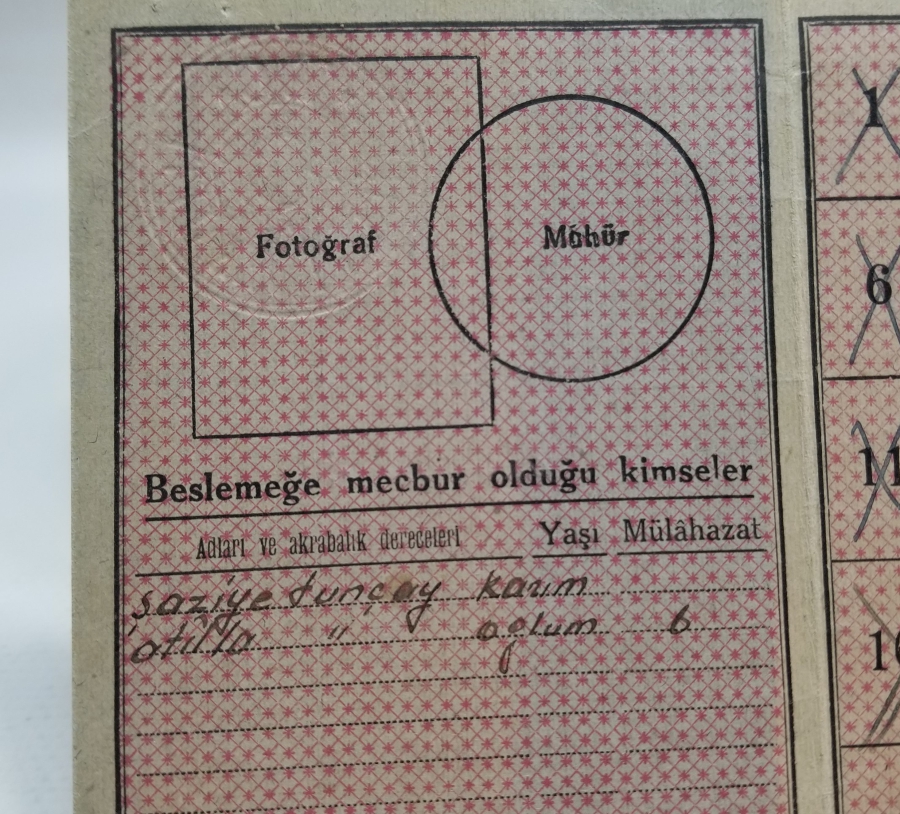 Fotoğraf
Mühür
Beslemeğe mecbur olduğu kimseler
Adları ve akrabalık dereceleri Yaşı Mülâhazat
şaziye tunçay karım
atilla " oğlum 6
1
6
11
16